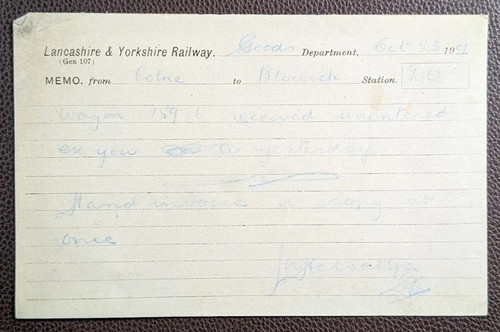 Lancashire & Yorkshire Railway. Goods Department. Oct 23 190
(Gen 107)
MEMO. from Colne to Blowick Station.
Wagon 15916 received unentered
ex you to yesterday
Hand invoice or copy at
once